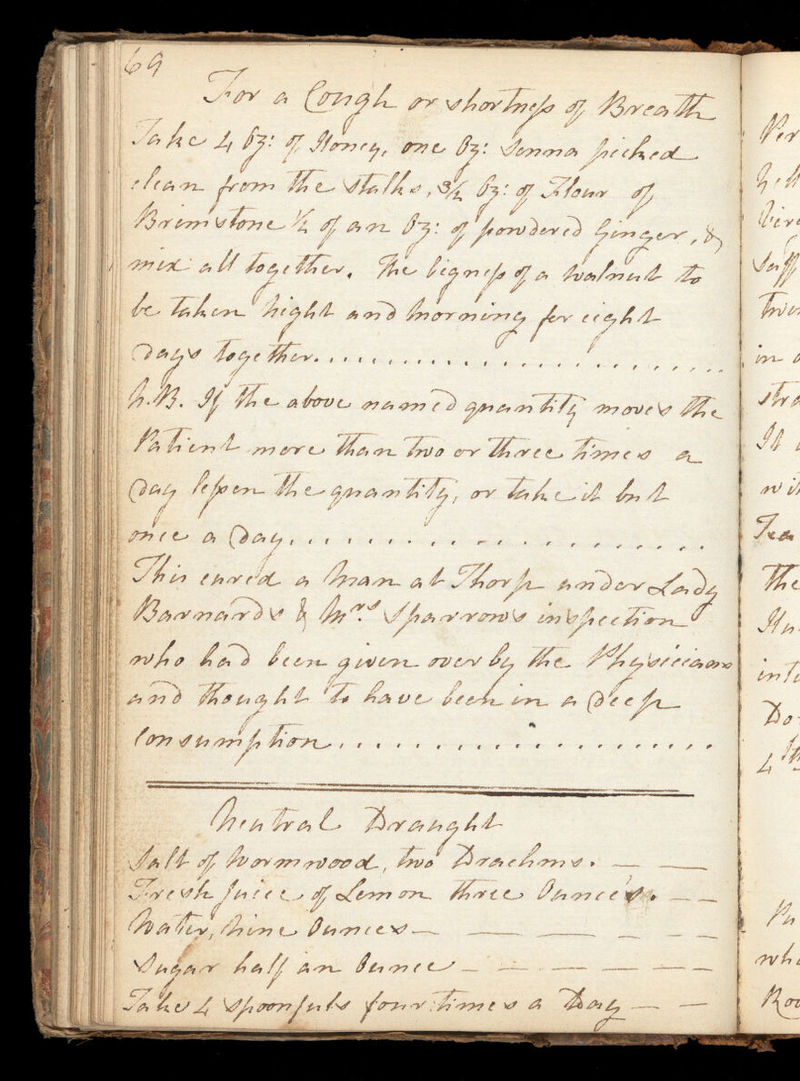 69
For a Cough or shortness of Breath
Take 4 Oz: of Honey, one Oz: Senna picked
clean from the stalks, 3/4 Oz: of Flour of
Brimstone 1/2 of an Oz: of powdered Ginger, &
mix all together. The bigness of a Walnut to
be taken Night and Morning for eight
Days together......................
N.B. If the above named quantity moves the
Patient more than two or three times a
Day lessen the quantity, or take it but
once a Day......................
This cured a Man at Thorp under Lady
Barnards & Mrs. Sparrows inspection
who had been given over by the Physicians
and thought to have been in a Deep
Consumption......................
Neutral Draught
Salt of Wormwood, two Drachms. — —
Fresh Juice of Lemon three Ounces. — —
Water, Nine Ounces — — — — — —
Sugar half an Ounce — — — — — —
Take 4 spoonfuls four times a Day — —
Ver
in
stra
It
wit
Tea
the
into
4th